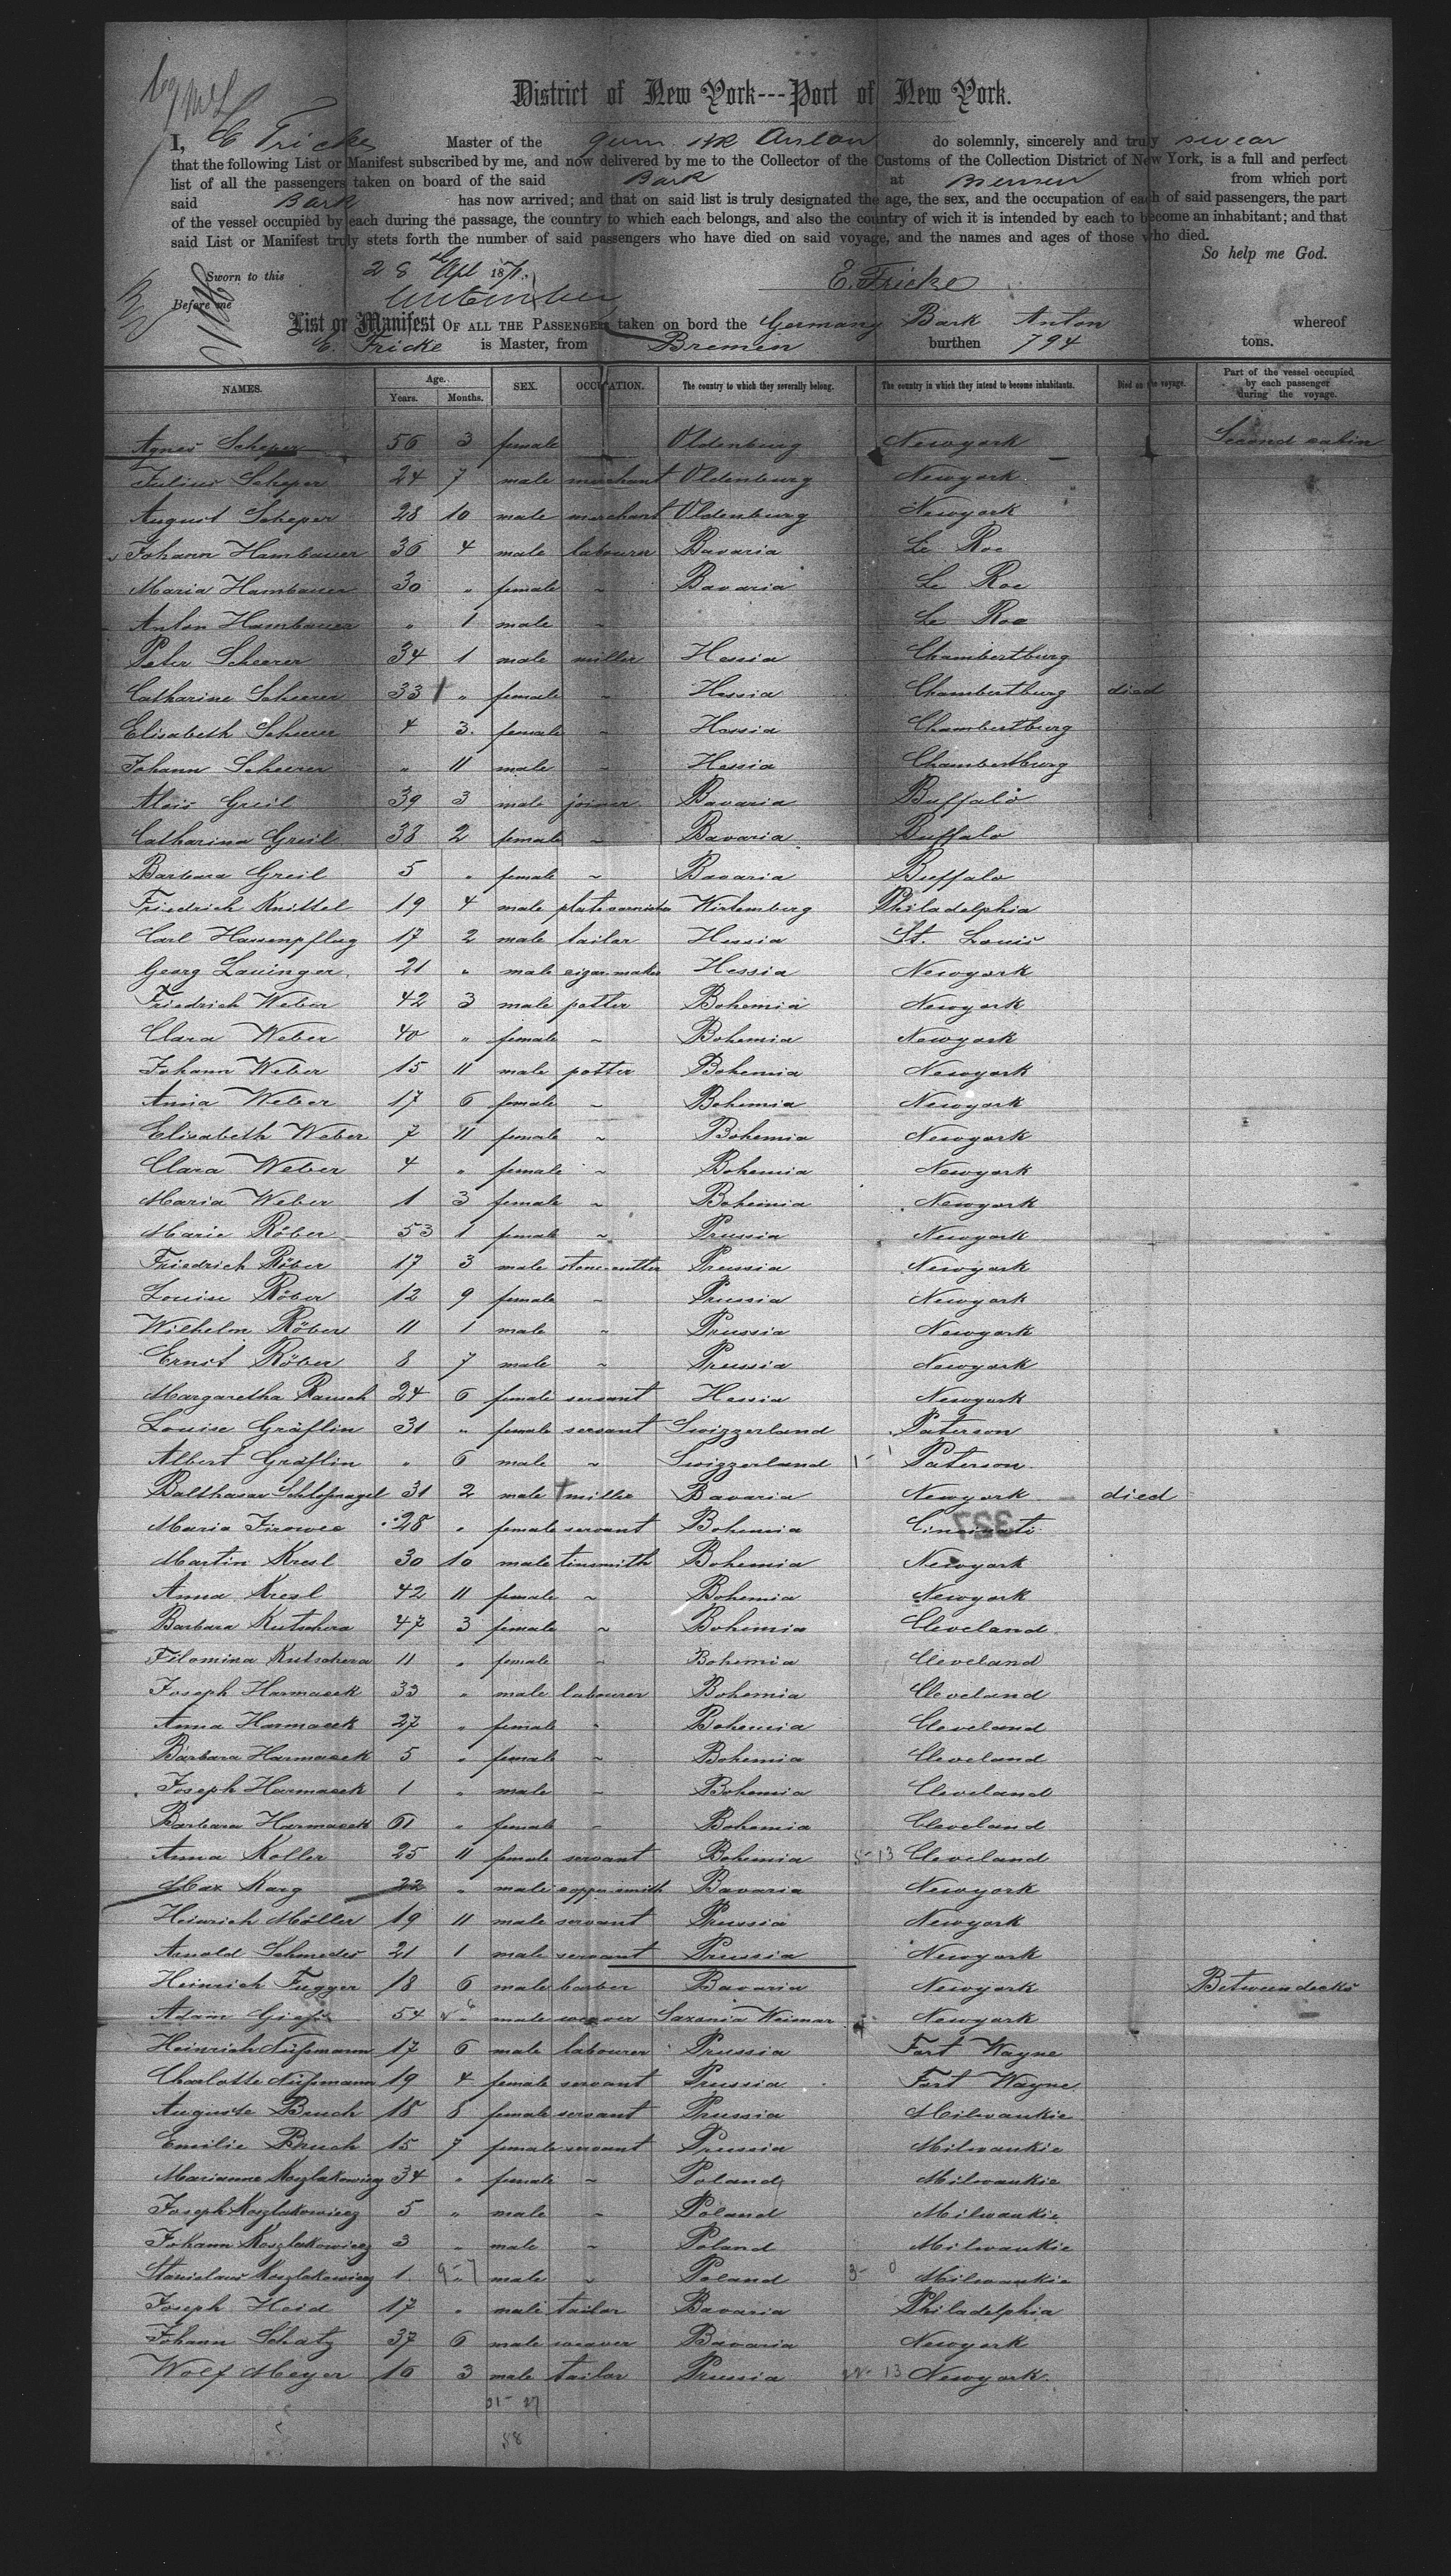 District of New York---Port of New York.
I, E Fricke Master of the Germ. Bk Anton do solemnly, sincerely and truly swear
that the following List or Manifest subscribed by me, and now delivered by me to the Collector of the Customs of the Collection District of New York, is a full and perfect
list of all the passengers taken on board of the said Bark at Bremen from which port
said Bark has now arrived; and that on said list is truly designated the age, the sex, and the occupation of each of said passengers, the part
of the vessel occupied by each during the passage, the country to which each belongs, and also the country of wich it is intended by each to become an inhabitant; and that
said List or Manifest truly stets forth the number of said passengers who have died on said voyage, and the names and ages of those who died.
So help me God.
Sworn to this 28 Apl 1871. E. Fricke
Before me
List or Manifest OF ALL THE PASSENGERS taken on bord the Germany Bark Anton whereof
E. Fricke is Master, from Bremen burthen 794 tons.
NAMES. Age. Years. Months. SEX. OCCUPATION. The country to which they severally belong. The country in which they intend to become inhabitants. Died on the voyage. Part of the vessel occupied by each passenger during the voyage.
Agnes Scheper 56 3 female Oldenburg Newyork Second cabin
Julius Scheper 24 7 male merchant Oldenburg Newyork
August Scheper 28 10 male merchant Oldenburg Newyork
Johann Hambauer 36 4 male labourer Bavaria Le Roe
Maria Hambauer 30 " female ~ Bavaria Le Roe
Anton Hambauer " 1 male ~ Le Roe
Peter Scheerer 34 1 male miller Hessia Chambertburg
Catharine Scheerer 33 " female ~ Hessia Chambertburg died
Elisabeth Scheerer 4 3 female ~ Hessia Chambertburg
Johann Scheerer " 11 male ~ Hessia Chambertburg
Alois Greil 39 3 male joiner Bavaria Buffalo
Catharina Greil 38 2 female ~ Bavaria Buffalo
Barbara Greil 5 " female ~ Bavaria Buffalo
Friedrich Knittel 19 4 male Wirtemberg Philadelphia
Carl Hassenpflug 17 2 male tailor Hessia St. Louis
Georg Lauinger 21 " male cigar-maker Hessia Newyork
Friedrich Weber 42 3 male potter Bohemia Newyork
Clara Weber 40 " female ~ Bohemia Newyork
Johann Weber 15 11 male potter Bohemia Newyork
Anna Weber 17 6 female ~ Bohemia Newyork
Elisabeth Weber 7 11 female ~ Bohemia Newyork
Clara Weber 4 " female ~ Bohemia Newyork
Maria Weber 1 3 female ~ Bohemia Newyork
Marie Röber 53 1 female ~ Prussia Newyork
Friedrich Röber 17 3 male stone-cutter Prussia Newyork
Louise Röber 12 9 female ~ Prussia Newyork
Wilhelm Röber 11 1 male ~ Prussia Newyork
Ernst Röber 8 7 male ~ Prussia Newyork
Margaretha Rausch 24 6 female servant Hessia Newyork
Louise Gräflin 31 " female servant Swizzerland Paterson
Albert Gräflin " 6 male ~ Swizzerland Paterson
Balthasar Schloßnagel 31 2 male miller Bavaria Newyork died
Maria Jirowec 28 " female servant Bohemia Cincinati
Martin Kresl 30 10 male tinsmith Bohemia Newyork
Anna Kresl 42 11 female ~ Bohemia Newyork
Barbara Kutschera 47 3 female ~ Bohemia Cleveland
Filomina Kutschera 11 " female ~ Bohemia Cleveland
Joseph Harmacek 33 " male labourer Bohemia Cleveland
Anna Harmacek 27 " female ~ Bohemia Cleveland
Barbara Harmacek 5 " female ~ Bohemia Cleveland
Joseph Harmacek 1 " male ~ Bohemia Cleveland
Barbara Harmacek 61 " female ~ Bohemia Cleveland
Anna Koller 25 11 female servant Bohemia 5-13 Cleveland
Max Karg 22 " male coppersmith Bavaria Newyork
Heinrich Möller 19 11 male servant Prussia Newyork
Arnold Schmedes 21 1 male servant Prussia Newyork
Heinrich Fugger 18 6 male barber Bavaria Newyork Betweendecks
Adam 54 male weaver Saxonia Weimar Newyork
Heinrich Nüßmann 17 6 male labourer Prussia Fort Wayne
Charlotte Nüßmann 19 4 female servant Prussia Fort Wayne
Auguste Bruch 18 8 female servant Prussia Milwaukie
Emilie Bruch 15 7 female servant Prussia Milwaukie
Marianne Koszlakowicz 34 " female ~ Poland Milwaukie
Joseph Koszlakowicz 5 " male ~ Poland Milwaukie
Johann Koszlakowicz 3 " male ~ Poland Milwaukie
Stanislaus Koszlakowicz 1 " male ~ Poland 3- 0 Milwaukie
Joseph Heid 17 " male tailor Bavaria Philadelphia
Johann Schatz 37 6 male weaver Bavaria Newyork
Wolf Meyer 16 3 male tailor Prussia Newyork
31-27
58